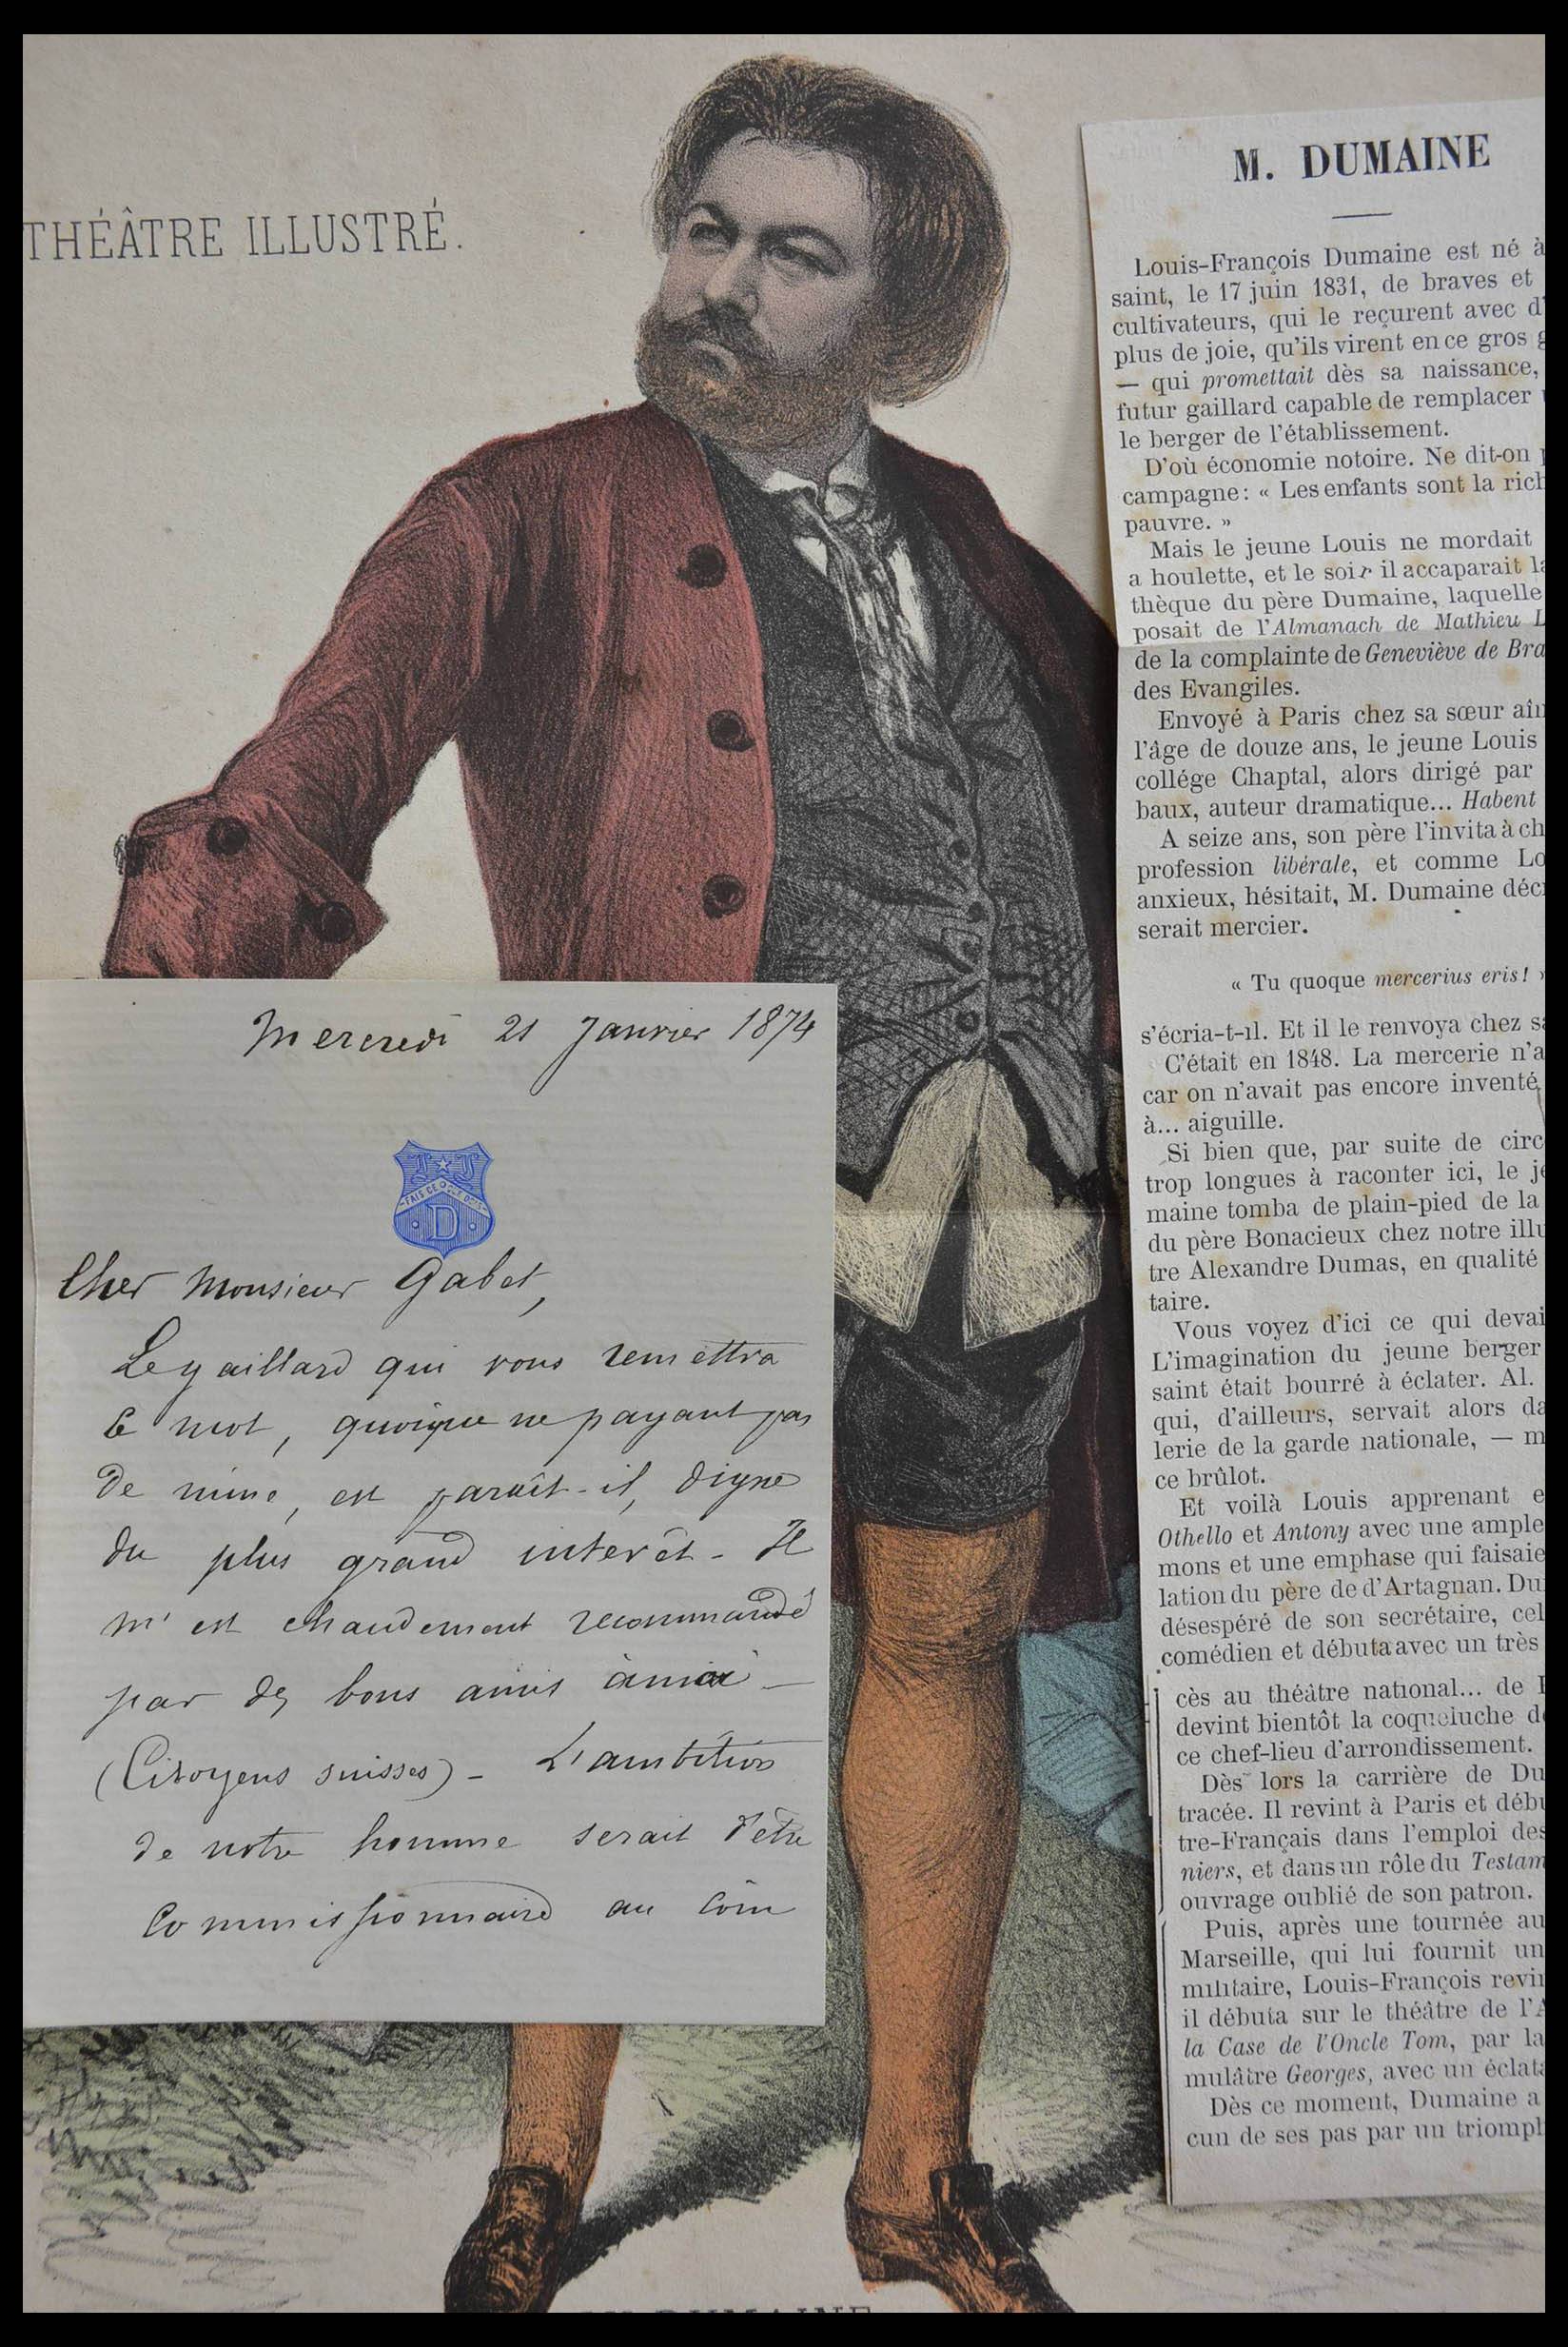 THÉÂTRE ILLUSTRÉ.
Mercredi 21 Janvier 1874
FAIS CE QUE DOIS
D
Cher Monsieur Gabet,
Le gaillard qui vous remettra
ce mot, quoique ne payant pas
de mine, est paraît-il, digne
du plus grand intérêt - Il
m'est chaudement recommandé
par des bons amis à moi -
(Citoyens suisses) - L'ambition
de notre homme serait d'être
Commissionnaire au coin
M. DUMAINE
Louis-François Dumaine est né à
saint, le 17 juin 1831, de braves et
cultivateurs, qui le reçurent avec d'
plus de joie, qu'ils virent en ce gros g
— qui promettait dès sa naissance,
futur gaillard capable de remplacer
le berger de l'établissement.
D'où économie notoire. Ne dit-on p
campagne: « Les enfants sont la rich
pauvre. »
Mais le jeune Louis ne mordait
a houlette, et le soir il accaparait la
thèque du père Dumaine, laquelle
posait de l'Almanach de Mathieu L
de la complainte de Geneviève de Bra
des Evangiles.
Envoyé à Paris chez sa sœur aîn
l'âge de douze ans, le jeune Louis
collége Chaptal, alors dirigé par
baux, auteur dramatique... Habent
A seize ans, son père l'invita à ch
profession libérale, et comme Lo
anxieux, hésitait, M. Dumaine déc
serait mercier.
« Tu quoque mercerius eris! »
s'écria-t-il. Et il le renvoya chez sa
C'était en 1848. La mercerie n'a
car on n'avait pas encore inventé
à... aiguille.
Si bien que, par suite de circ
trop longues à raconter ici, le je
maine tomba de plain-pied de la
du père Bonacieux chez notre illu
tre Alexandre Dumas, en qualité
taire.
Vous voyez d'ici ce qui devai
L'imagination du jeune berger
saint était bourré à éclater. Al.
qui, d'ailleurs, servait alors da
lerie de la garde nationale, — m
ce brûlot.
Et voilà Louis apprenant e
Othello et Antony avec une ample
mons et une emphase qui faisaie
lation du père de d'Artagnan. Du
désespéré de son secrétaire, cel
comédien et débuta avec un très
cès au théâtre national... de
devint bientôt la coqueluche d
ce chef-lieu d'arrondissement.
Dès lors la carrière de Du
tracée. Il revint à Paris et débu
tre-Français dans l'emploi des
niers, et dans un rôle du Testam
ouvrage oublié de son patron.
Puis, après une tournée au
Marseille, qui lui fournit un
militaire, Louis-François revin
il débuta sur le théâtre de l'A
la Case de l'Oncle Tom, par la
mulâtre Georges, avec un éclata
Dès ce moment, Dumaine a
cun de ses pas par un triomph